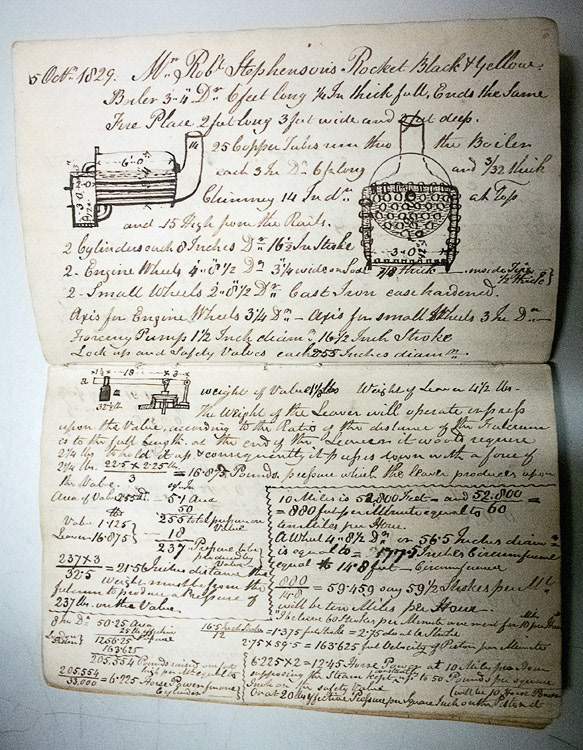 5 Octr. 1829. Mr. Robt. Stephenson's Rocket Black & Yellow.
Boiler 3-4 Dr. 6 feet long 1/4 In thick full, Ends the Same
Fire Place 2 feet long 3 feet wide and 2 feet deep.
25 Copper Tubes run thro the Boiler
each 3 In Dr. 6 ft long and 3/32 thick
Chimney 14 In dr. at Top
and 15 High from the Rails.
14
6-0
2-0
3-0
3-0
2 Cylinders each 8 Inches Dr. 16½ In Stroke
2- Engine Wheels 4"8½ Dr. 3¾ wide on Sole 7/8 thick inside Tyre ½ thick
2- Small Wheels 2"8½ Dr. Cast Iron case hardened.
Axis for Engine Wheels 3¼ Dr. - Axis for small Wheels 3 In Dr.
Forcing Pump 1½ Inch diamr. 16½ Inch Stroke
Lock up and Safety Valves each 2.55 Inches diamr.
18
3
a
a
32½ lb
weight of Valve 1⅛ lbs Weight of Leaver 4½ lbs.
the Weight of the Leaver will operate express
upon the Valve, according to the Ratio of the distance of the Fulcrum
is to the full Length. at the end of the Leaver it would require
2¼ lbs to hold it up & consequently it presses down with a force of
2¼ lbs. 22.5 × 2.25 lb. / 3 = 16.875 Pounds. pressure which the leaver produces upon
the Valve.
Area of Valve 2.55 D. 5.1 Area
50
255 total pressure on Valve
Valve 1.125
Leaver 16.875
18
237 Pressure to be produced by Valve
237 × 3 / 32.5 = 21.56 Inches distance the
Weight must be from the
fulcrum to produce a Pressure of
237 lbs. on the Valve.
10 Miles is 52,800 Feet = and 52.800 / 60 =
= 880 feet per Minute equal to
ten Miles per Hour.
A Wheel 4"8½ Dr. or 56.5 Inches diamr.
is equal to = 177.5 Inches Circumference
equal to 14.8 feet - Circumference
880 / 14.8 = 59.459 say 59½ Strokes per Mt.
will be ten Miles per Hour -
8 In Dr. 50.25 Area
25 lb
1256.25
163.625
205.554 Pounds raised one foot
205.554 / 33.000 = 6.225 Horse Power for one Cylinder
16.5 Inch Stroke / 12 = 1.375 feet stroke = 2.75 double Stroke
2.75 × 59.5 = 163.625 feet Velocity of Piston per Minute
6.225 × 2 = 12.45 Horse Power at 10 Miles per Hour
supposing the Steam kept up to 50 Pounds per Square
Inch on the safety Valve
(will be 10 Horse Power
Or at 20 lbs effective Pressure per Square Inch on the Piston it